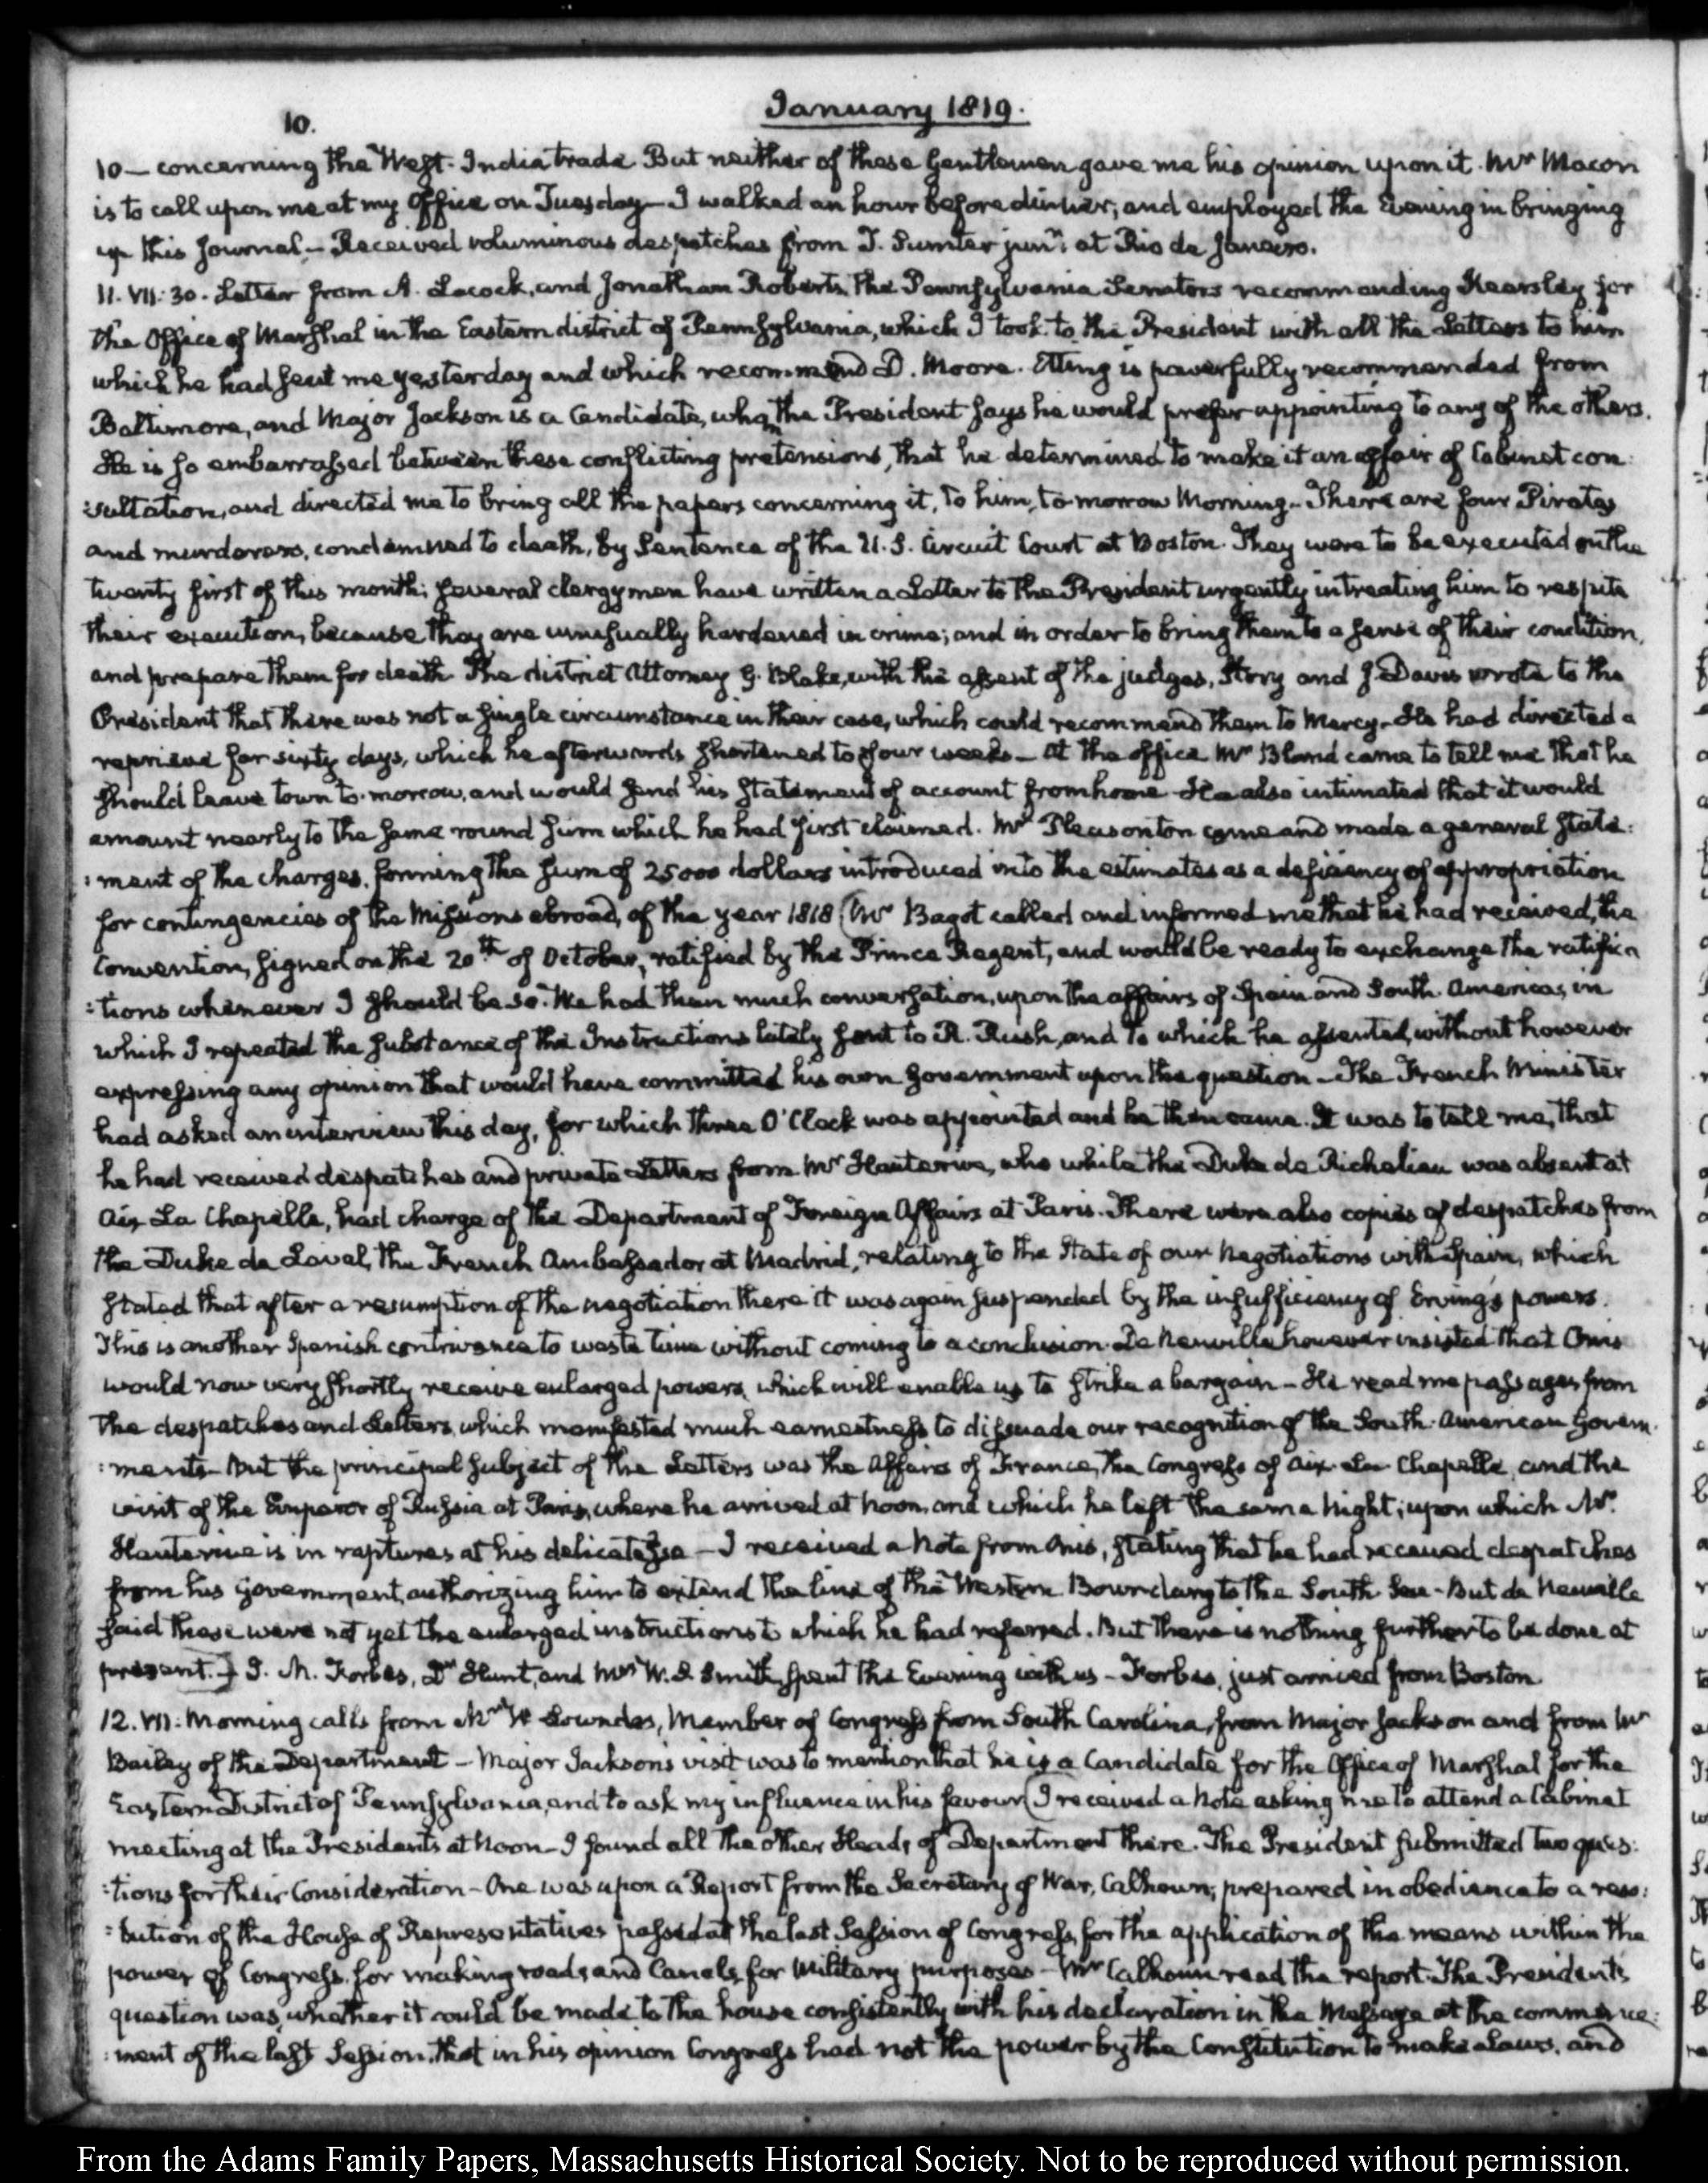 January 1819.
10.
10 — concerning the West-India trade But neither of these Gentlemen gave me his opinion upon it. Mr Macon
is to call upon me at my Office on Tuesday — I walked an hour before dinner, and employed the Evening in bringing
up this Journal. — Received voluminous despatches from T. Sumter junr. at Rio de Janeiro.
11. VII: 30. Letter from A. Lacock, and Jonathan Roberts, the Pennsylvania Senators recommending Kearsley for
the Office of Marshal in the Eastern district of Pennsylvania, which I took to the President with all the Letters to him
which he had sent me yesterday and which recommend D. Moore. Etting is powerfully recommended from
Baltimore, and Major Jackson is a Candidate, whom the President says he would prefer appointing to any of the others.
He is so embarrassed between these conflicting pretensions, that he determined to make it an affair of Cabinet con:
:sultation, and directed me to bring all the papers concerning it, to him, to-morrow Morning — There are four Pirates
and murderers, condemned to death, by Sentence of the U.S. Circuit Court at Boston. They were to be executed on the
twenty first of this month; several clergymen have written a Letter to the President urgently intreating him to respite
their execution, because they are unusually hardened in crime; and in order to bring them to a sense of their condition,
and prepare them for death. The district Attorney G. Blake, with the assent of the judges, Story and J. Davis wrote to the
President that there was not a single circumstance in their case, which could recommend them to Mercy. He had directed a
reprieve for sixty days, which he afterwards shortened to four weeks — At the office Mr Bland came to tell me that he
should leave town to-morrow, and would send his statement of account from home. He also intimated that it would
amount nearly to the same round sum which he had first claimed. Mr Pleasonton came and made a general state:
:ment of the charges, forming the sum of 25000 dollars introduced into the estimates as a deficiency of appropriation
for contingencies of the Missions abroad, of the year 1818 (Mr Bagot called and informed me that he had received, the
Convention, signed on the 20th of October, ratified by the Prince Regent, and would be ready to exchange the ratifica
:tions whenever I should be so. We had then much conversation, upon the affairs of Spain and South-America, in
which I repeated the substance of the Instructions lately sent to R. Rush, and to which he assented, without however
expressing any opinion that would have committed his own Government upon the question — The French Minister
had asked an interview this day, for which three O'Clock was appointed and he then came. It was to tell me, that
he had received despatches and private Letters from Mr Hauterive, who while the Duke de Richelieu was absent at
Aix La Chapelle, had charge of the Department of Foreign Affairs at Paris. There were also copies of despatches from
the Duke de Laval, the French Ambassador at Madrid, relating to the State of our Negotiations with Spain, which
stated that after a resumption of the negotiation there it was again suspended by the insufficiency of Erving's powers.
This is another Spanish contrivance to waste time without coming to a conclusion. De Neuville however insisted that Onis
would now very shortly receive enlarged powers, which will enable us to strike a bargain — He read me passages from
the despatches and Letters, which manifested much earnestness to dissuade our recognition of the South-American Govern
:ments — But the principal subject of the Letters was the Affairs of France, the Congress of Aix-La-Chapelle, and the
visit of the Emperor of Russia at Paris, where he arrived at Noon, and which he left the same Night; upon which Mr
Hauterive is in raptures at his delicatesse — I received a Note from Onis, stating that he had received despatches
from his Government, authorizing him to extend the line of the Western Boundary to the South Sea — But de Neuville
said these were not yet the enlarged instructions to which he had referred. But there is nothing further to be done at
present.) J. M. Forbes, Dr Hunt, and Mrs W. S. Smith, spent the Evening with us — Forbes, just arrived from Boston.
12. VII: Morning calls from Mr W Lowndes, Member of Congress from South Carolina, from Major Jackson and from Mr
Bailey of the Department — Major Jackson's visit was to mention that he is a Candidate for the Office of Marshal for the
Eastern District of Pennsylvania, and to ask my influence in his favour (I received a Note asking me to attend a Cabinet
meeting at the Presidents at Noon — I found all the other Heads of Department there. The President submitted two ques:
:tions for their Consideration — One was upon a Report from the Secretary of War, Calhoun, prepared in obedience to a reso:
:lution of the House of Representatives passed at the last Session of Congress, for the application of the means within the
power of Congress, for making roads and Canals for Military purposes — Mr Calhoun read the report. The President's
question was, whether it could be made to the house consistently with his declaration in the Message at the commence:
:ment of the last Session, that in his opinion Congress had not the power by the Constitution to make Laws, and
From the Adams Family Papers, Massachusetts Historical Society. Not to be reproduced without permission.